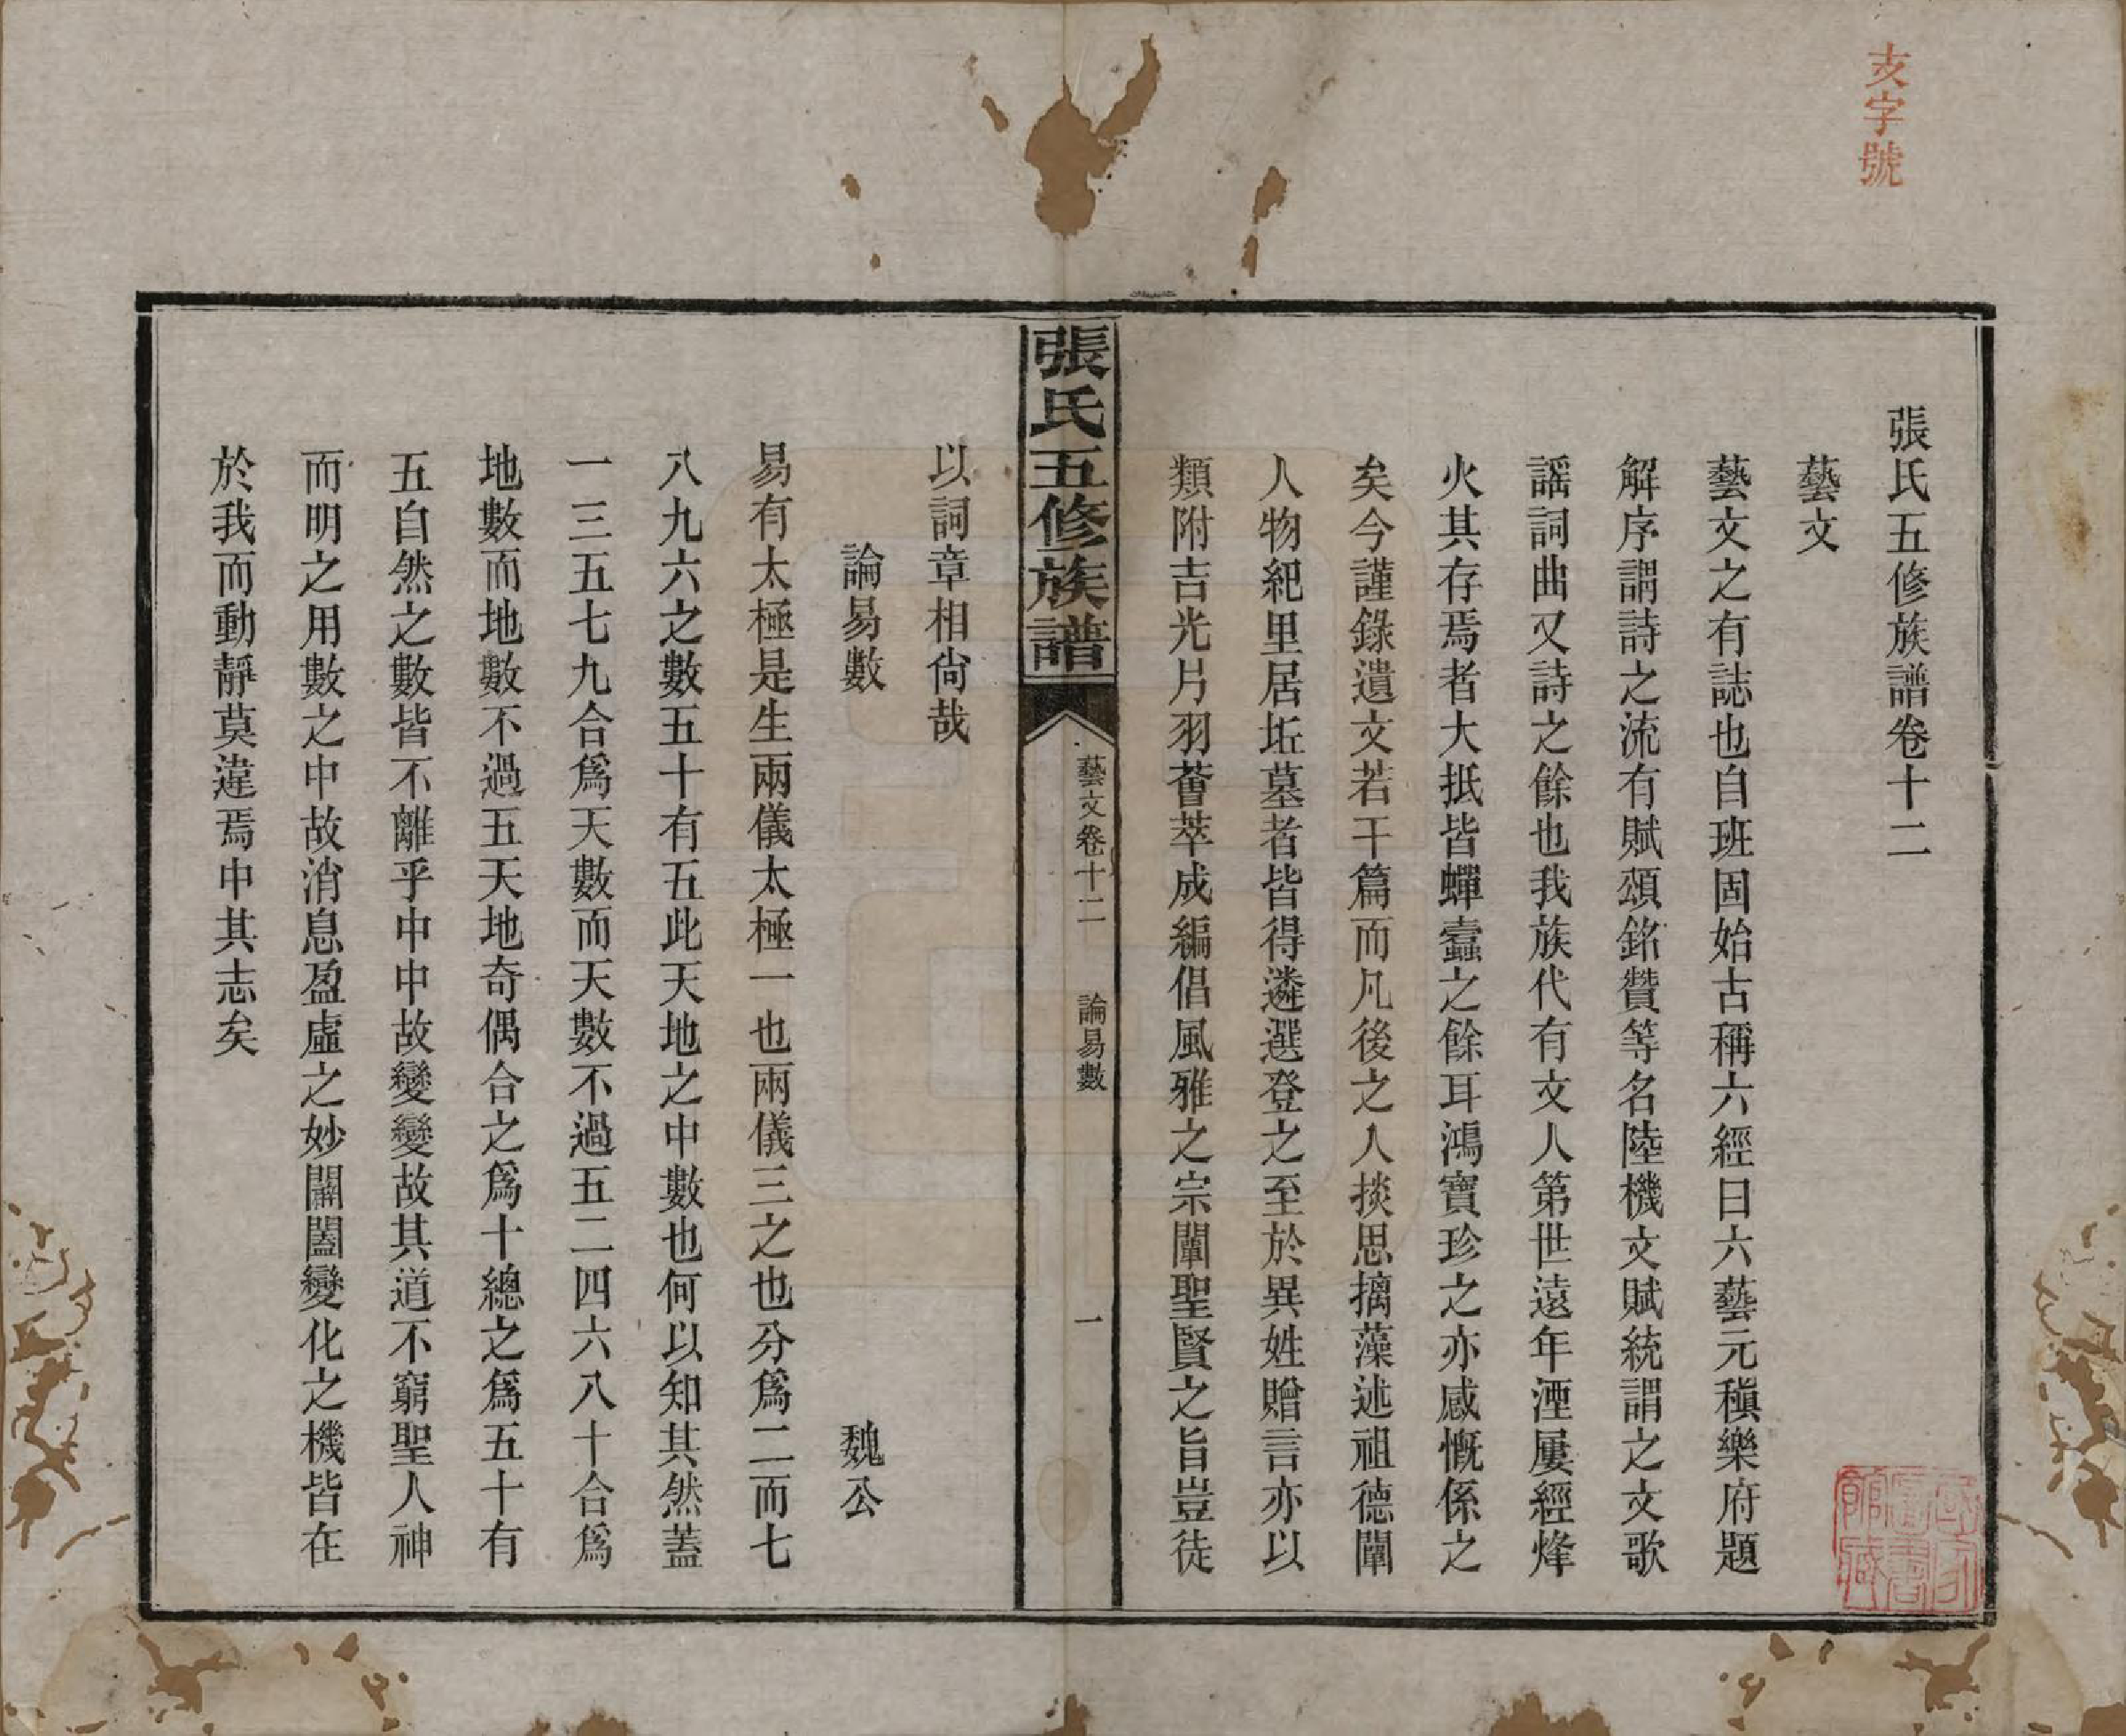 張氏五修族譜卷十二
藝文
藝文之有誌也自班固始古稱六經曰六藝元稹樂府題
解序謂詩之流有賦頌銘贊等名陸機文賦統謂之文歌
謡詞曲又詩之餘也我族代有文人第世遠年湮屢經烽
火其存焉者大抵皆蟫蠹之餘耳鴻寶珍之亦感慨係之
矣今謹錄遺文若干篇而凡後之人掞思摛藻述祖德闡
人物紀里居坵墓者皆得遴選登之至於異姓贈言亦以
類附吉光片羽薈萃成編倡風雅之宗闡聖賢之旨豈徒
張氏五修族譜
藝文卷十二
論易數
一
以詞章相尙哉
論易數
魏公
易有太極是生兩儀太極一也兩儀三之也分爲二而七
八九六之數五十有五此天地之中數也何以知其然蓋
一三五七九合爲天數而天數不過五二四六八十合爲
地數而地數不過五天地奇偶合之爲十總之爲五十有
五自然之數皆不離乎中中故變變故其道不窮聖人神
而明之用數之中故消息盈虛之妙闢闔變化之機皆在
於我而動靜莫違焉中其志矣
亥字號
國方圖書館藏